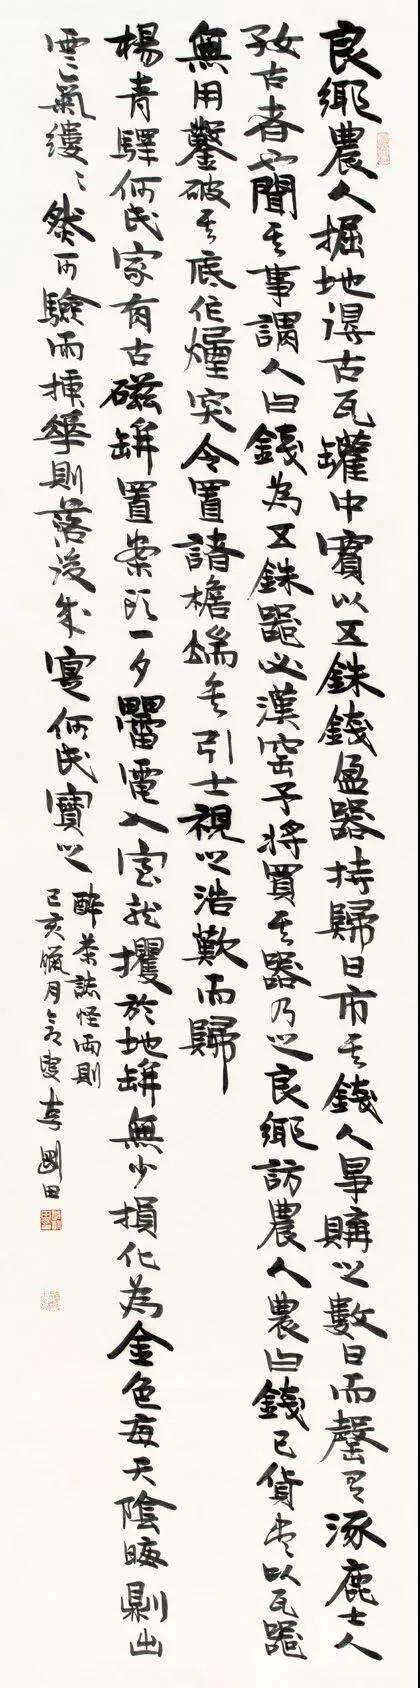 良鄉農人掘地得古瓦罐中實以五銖錢盈器持歸日市其錢人爭購之數日而罄有涿鹿士人
好古者也聞其事謂人曰錢為五銖器必漢窑予將買其器乃之良鄉訪農人農曰錢已貨盡以瓦器
無用鑿破其底作煙突令置諸檐端矣引士視之浩歎而歸
楊青驛何氏家有古磁缾置案頭一夕靁電入室就攫於地缾無少損化為金色每天陰晦則出
雲氣縷縷然可驗而插華則落後成實何氏寶之
醉茶誌怪兩則
己亥臘月 李剛田